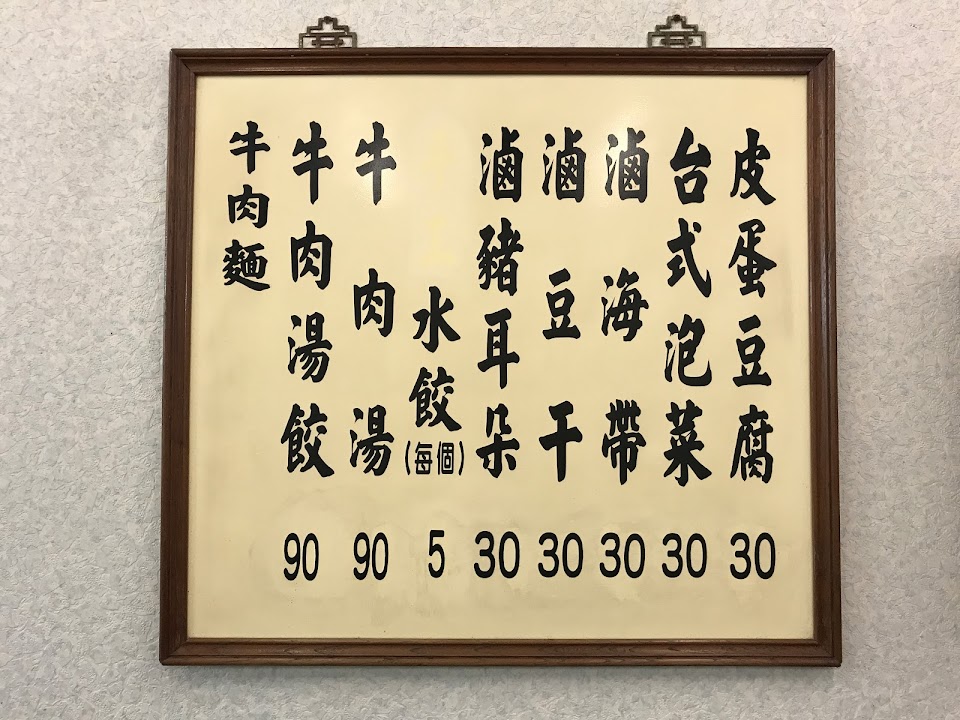 皮蛋豆腐 30
台式泡菜 30
滷海帶 30
滷豆干 30
滷豬耳朵 30
水餃(每個) 5
牛肉湯 90
牛肉湯餃 90
牛肉麵